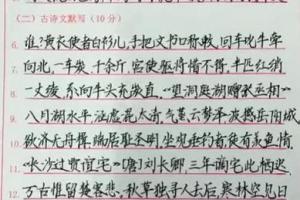 (二)古诗文默写(10分)
6. 谁?黄衣使者白衫儿,手把文书口称敕,回车叱牛牵
7. 向北,一车炭,千余斤,宫使驱将惜不得,半匹红绡
8. 一丈绫,系向牛头充炭直,"望洞庭湖赠张丞相"
9. 八月湖水平,涵虚混太清,气蒸云梦泽,波撼岳阳城
10. 欲济无舟楫,端居耻圣明,坐观垂钓者,徒有羡鱼情
11. "长沙过贾谊宅"(唐)刘长卿,三年谪宦此栖迟,
12. 万古惟留楚客悲,秋草独寻人去后,寒林空见日